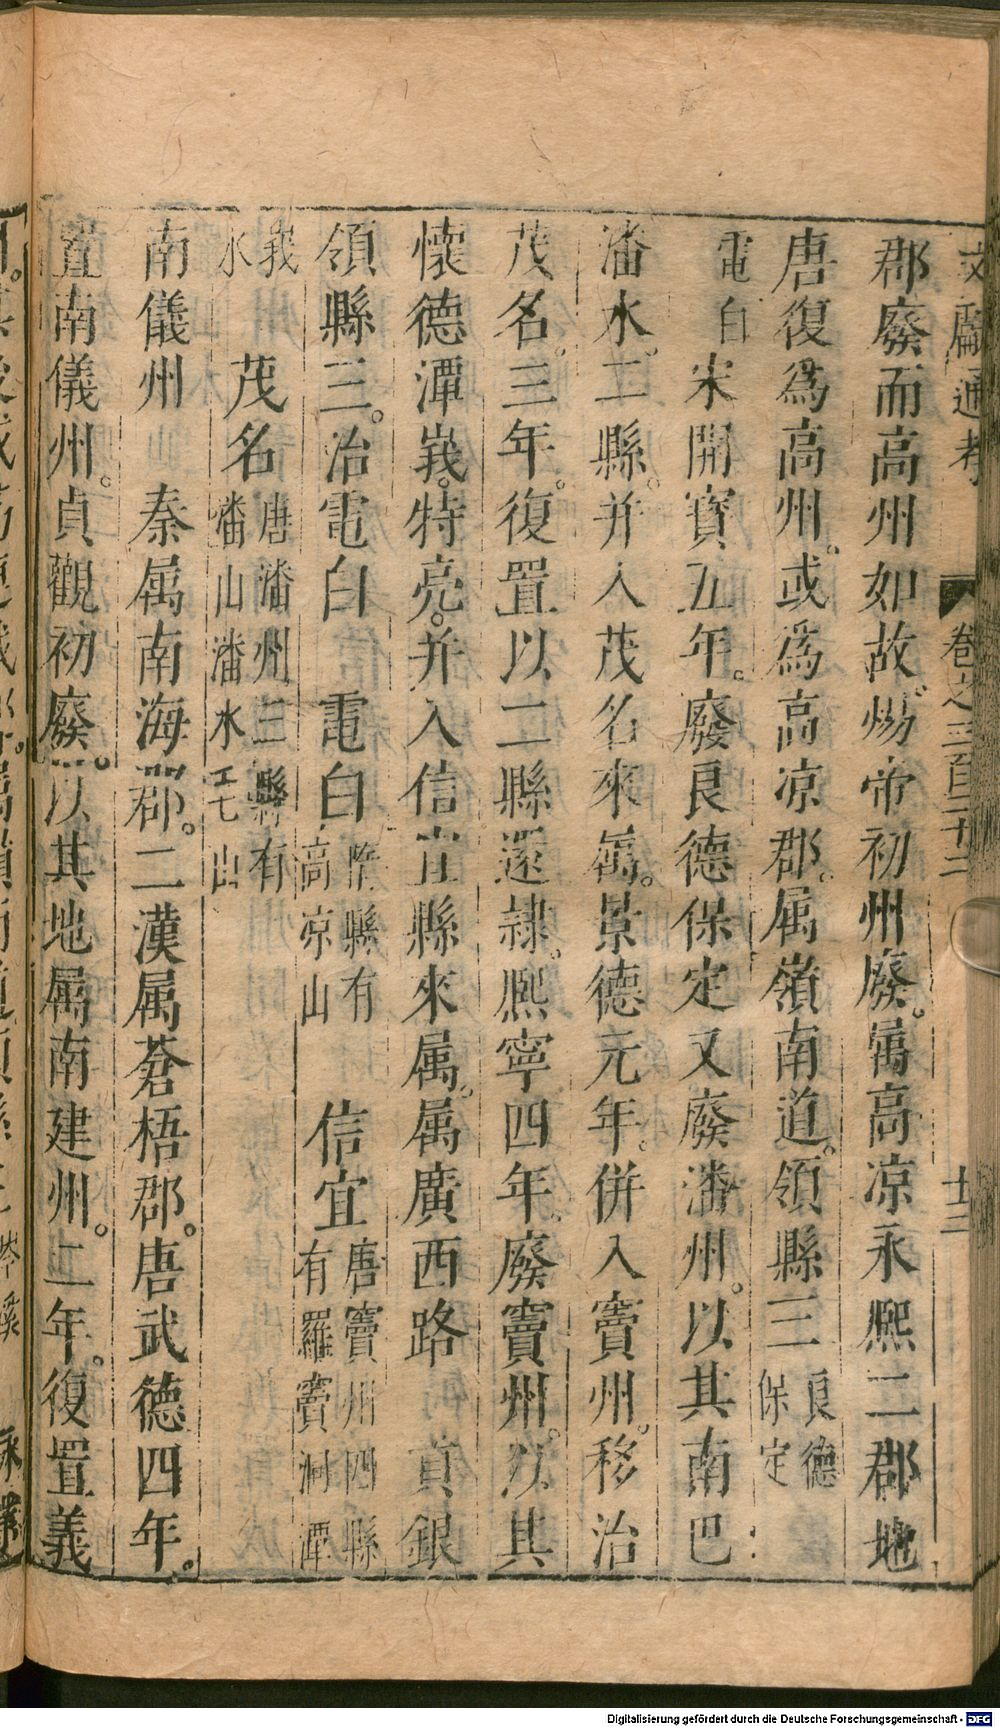 文獻通考 卷之三百二十三 十三
郡廢而高州如故煬帝初州廢。屬高凉永熙二郡地
唐復爲高州。或爲高凉郡。属嶺南道。領縣三良德保定
電白 宋開寳五年。廢良德保定又廢潘州。以其南巴
潘水。二縣。并入茂名來屬。景德元年。併入竇州。移治
茂名。三年。復置以二縣還隷。熙寧四年。廢竇州。以其
懷德潭峩。特亮。并入信宜縣來属。属廣西路 貢銀
領縣三。治電白 電白舊縣有高凉山 信宜唐竇州四縣有羅竇洞潭
峩水 茂名唐潘州三縣有潘山潘水 山
南儀州 秦属南海郡。二漢属蒼梧郡。唐武德四年。
置南儀州。貞觀初廢。以其地属南建州。二年。復置義
Digitalisierung gefördert durch die Deutsche Forschungsgemeinschaft - DFG